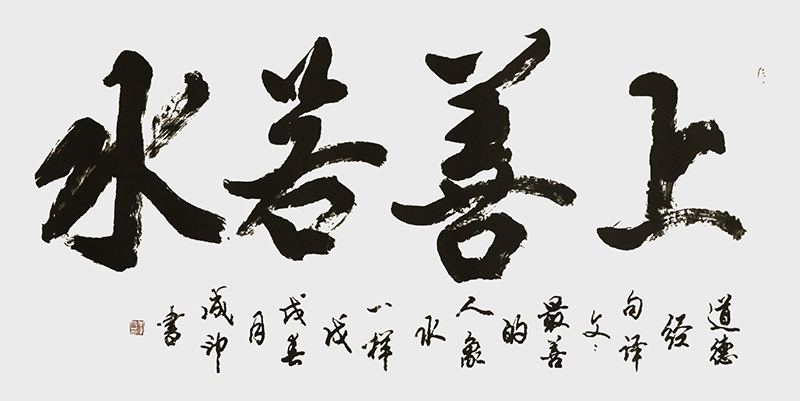 上善若水
道德
经
句译
文:
最善
的
人象
水
一样
戊
戌春
月
书